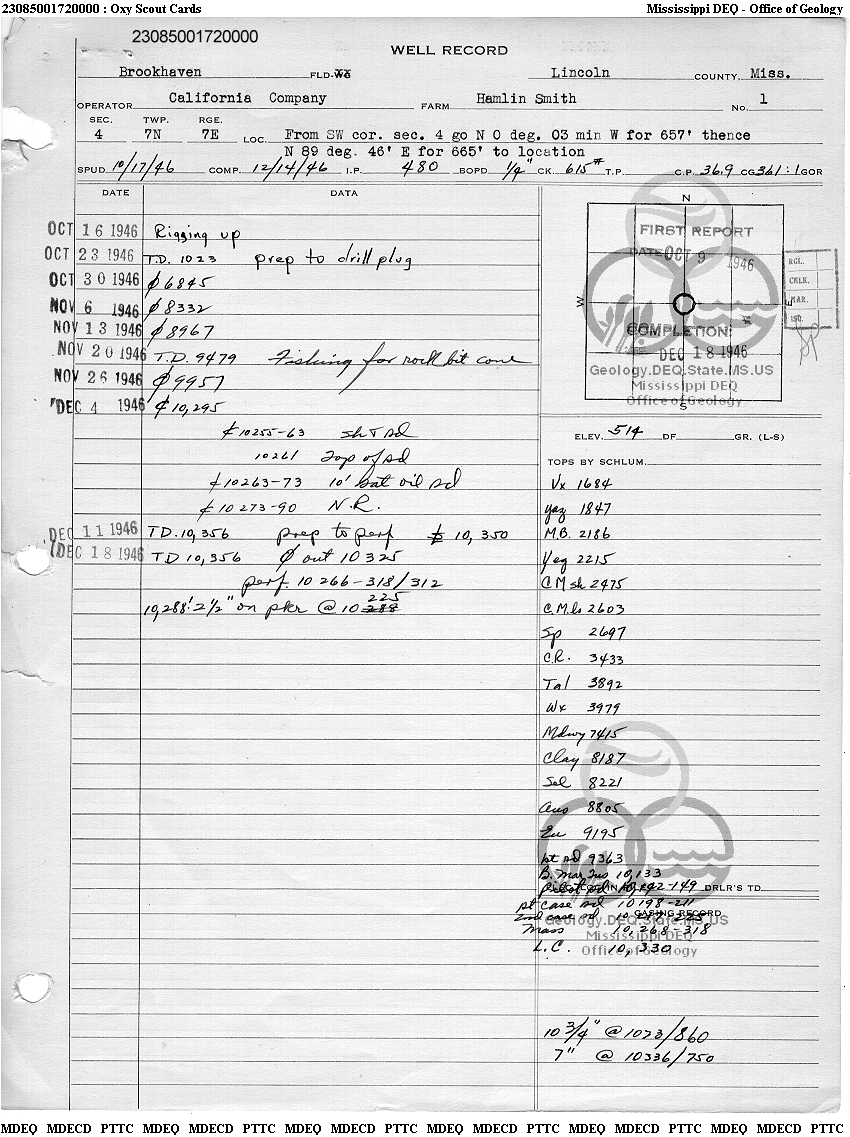 23085001720000 : Oxy Scout Cards Mississippi DEQ - Office of Geology
23085001720000
WELL RECORD
Brookhaven FLD. Lincoln COUNTY, Miss.
OPERATOR California Company FARM Hamlin Smith No. 1
SEC. TWP. RGE.
4 7N 7E LOC. From SW cor. sec. 4 go N 0 deg. 03 min W for 657' thence
N 89 deg. 46' E for 665' to location
SPUD 10/17/46 COMP. 12/14/46 I.P. 480 BOPD 1/4" CK. 615# T.P. C.P. 36.9 CG 361:1 GOR
DATE DATA
OCT 16 1946 Rigging up
OCT 23 1946 T.D. 1023 prep to drill plug
OCT 30 1946 ϕ 6845
NOV 6 1946 ϕ 8332
NOV 13 1946 ϕ 8967
NOV 20 1946 T.D. 9479 Fishing for rock bit cone
NOV 26 1946 ϕ 9957
DEC 4 1946 ϕ 10,295
¢ 10255-63 sh & sd
10261 Top of sd
¢ 10263-73 10' sat oil sd
¢ 10273-90 N.R.
DEC 11 1946 TD. 10,356 prep to perf 10,350
DEC 18 1946 TD 10,356 ϕ out 10325
perf. 10266-318/312
225
10,288' 2½" on pkr @ 10 288
N
FIRST REPORT
DATE OCT 9 1946
W E
COMPLETION
DEC 18 1946
S
RGL.
CHLK.
MAR.
ISO.
Geology.DEQ.State.MS.US
Mississippi DEQ
Office of Geology
ELEV. 514 DF GR. (L-S)
TOPS BY SCHLUM.
Vx 1684
Yaz 1847
M.B. 2186
Yeg 2215
C.M sh 2475
C.M. ls 2603
Sp 2697
C.R. 3433
Tal 3892
Wx 3979
Mdwy 7415
Clay 8187
Sel 8221
Aus 8805
Eu 9195
9363
B. Mar Tus 10,133
Pilot sd 10,142-149 DRLR'S TD
1st case sd 10198-211
2nd case sd
CASING RECORD
Mass 10,268-318
L.C. 10,330
Geology.DEQ.State.MS.US
Mississippi DEQ
Office of Geology
10 3/4" @ 1023/860
7" @ 10336/750
MDEQ MDECD PTTC MDEQ MDECD PTTC MDEQ MDECD PTTC MDEQ MDECD PTTC MDEQ MDECD PTTC MDEQ MDECD PTTC